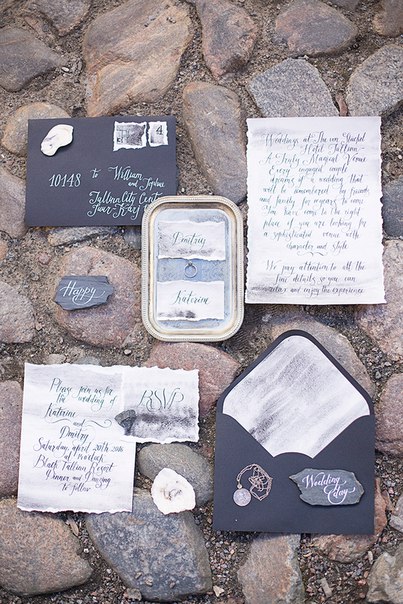 10148
To William
and Sophie
Tallinn City Center
Dmitriy
Katerina
Happy
Weddings at
Hotel Tallinn
A Truly Magical Venue
Every engaged couple
dreams of a wedding that
will be remembered by friends
and family for years to come
You have come to the right
place if you are looking for
a sophisticated venue with
character and style
We pay attention to all the
fine details so you can
relax and enjoy the experience
Please join us for
the wedding of
Katerina
and
Dmitriy
Saturday, april 20th 2016
Black Tallinn Resort
Dinner and Dancing
to Follow
RSVP
Wedding
Day